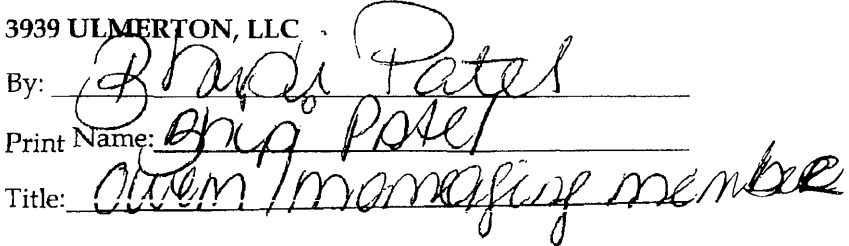 3939 ULMERTON, LLC
By: Patel
Print Name: Patel
Title: Owen / managing member